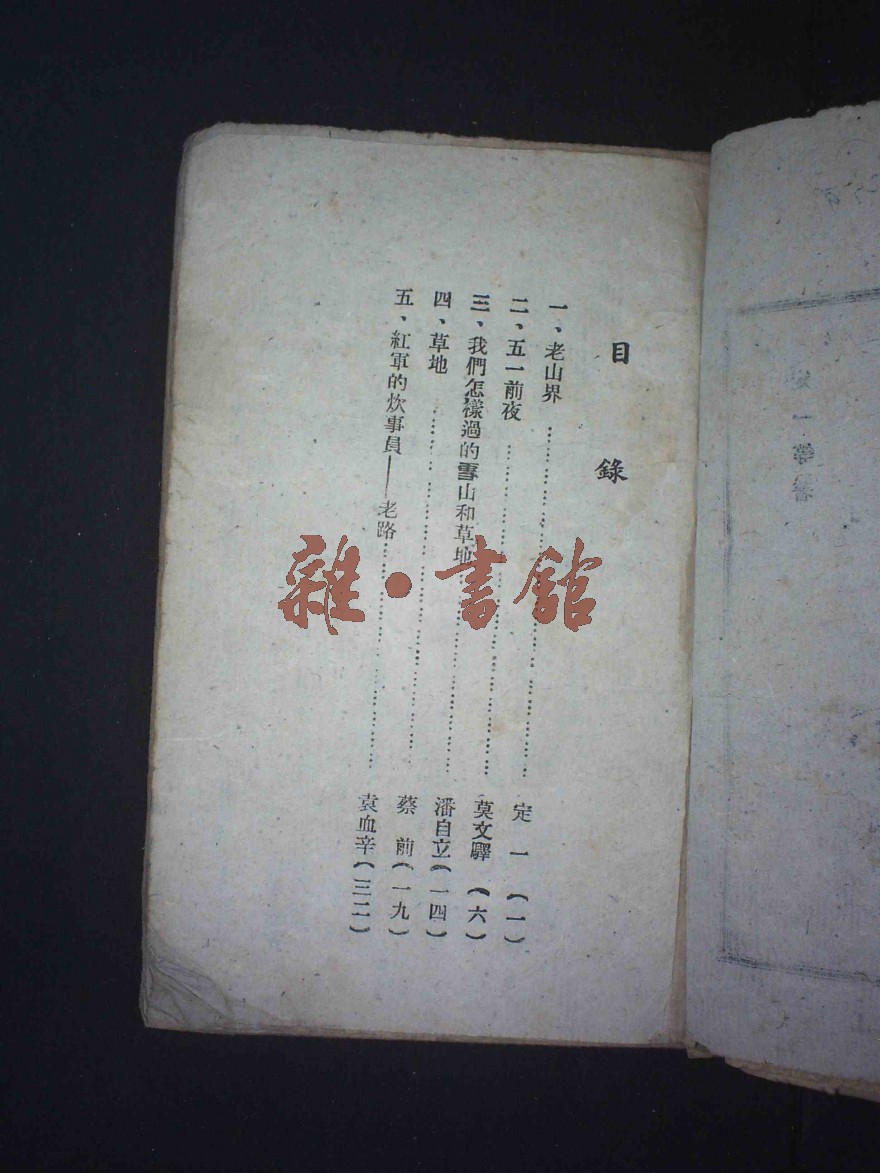 目錄
一、老山界……定一(一)
二、五一前夜……莫文驊(六)
三、我們怎樣過的雪山和草地……潘自立(一四)
四、草地……蔡前(一九)
五、紅軍的炊事員——老路……袁血辛(三二)
雜·書館